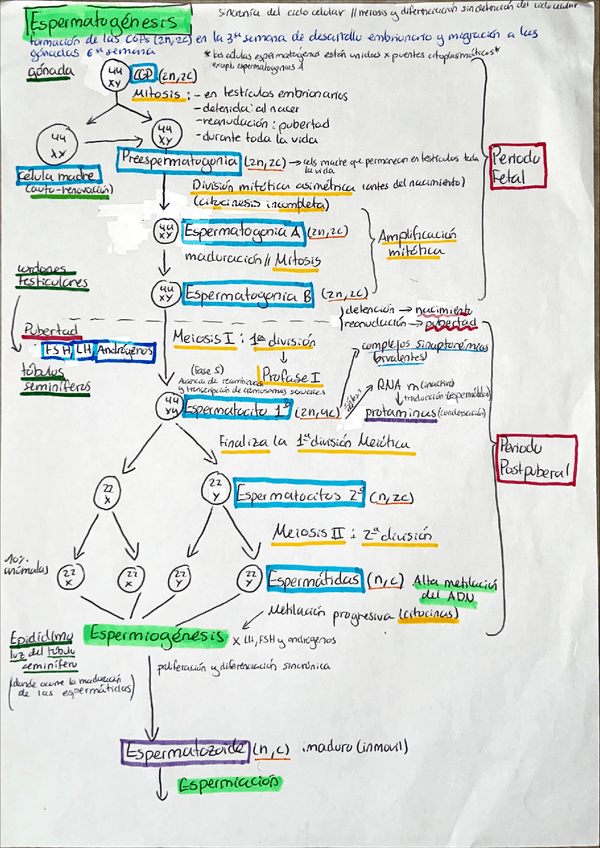 Espermatogénesis
Sincronía del ciclo celular // meiosis y diferenciación sin detención del ciclo celular
formación de las CGPs (2n, 2c) en la 3ª semana de desarrollo embrionario y migración a las
gónadas 6ª semana
* las células espermatógenas están unidas x puentes citoplasmáticos *
excepto espermatogonias A
gónada
44
XY
CGP (2n, 2c)
Mitosis : - en testículos embrionarios
- detenida: al nacer
- reanudación : pubertad
- durante toda la vida
44
XY
44
XY
Célula madre
(auto-renovación)
Preespermatogonia (2n, 2c) → cels madre que permanecen en testículos toda
la vida
División mitótica asimétrica (antes del nacimiento)
(citocinesis incompleta)
Periodo
Fetal
44
XY
Espermatogonia A (2n, 2c)
maduración // Mitosis
Amplificación
mitótica
44
XY
Espermatogonia B (2n, 2c)
cordones
testiculares
detención → nacimiento
reanudación → pubertad
Pubertad
FSH LH Andrógenos
túbulos
seminíferos
Meiosis I : 1ª división
Profase I
(Fase S)
complejos sinaptonémicos
(bivalentes)
RNA m (inactivo)
traducción (espermátida)
protaminas (condensación)
44
XY
Espermatocito 1º (2n, 4c)
Finaliza la 1ª división Meiótica
Periodo
Postpuberal
22
X
22
Y
Espermatocitos 2º (n, 2c)
Meiosis II : 2ª división
10%
anómalas
22
X
22
X
22
Y
22
Y
Espermátidas (n, c)
Alta metilación
del ADN
Metilación progresiva (citocinas)
Epidídimo
luz del túbulo
seminífero
(donde ocurre la maduración
de las espermátidas)
Espermiogénesis x LH, FSH y andrógenos
proliferación y diferenciación sincrónica
Espermatozoide (n, c) inmaduro (inmovil)
Espermiación